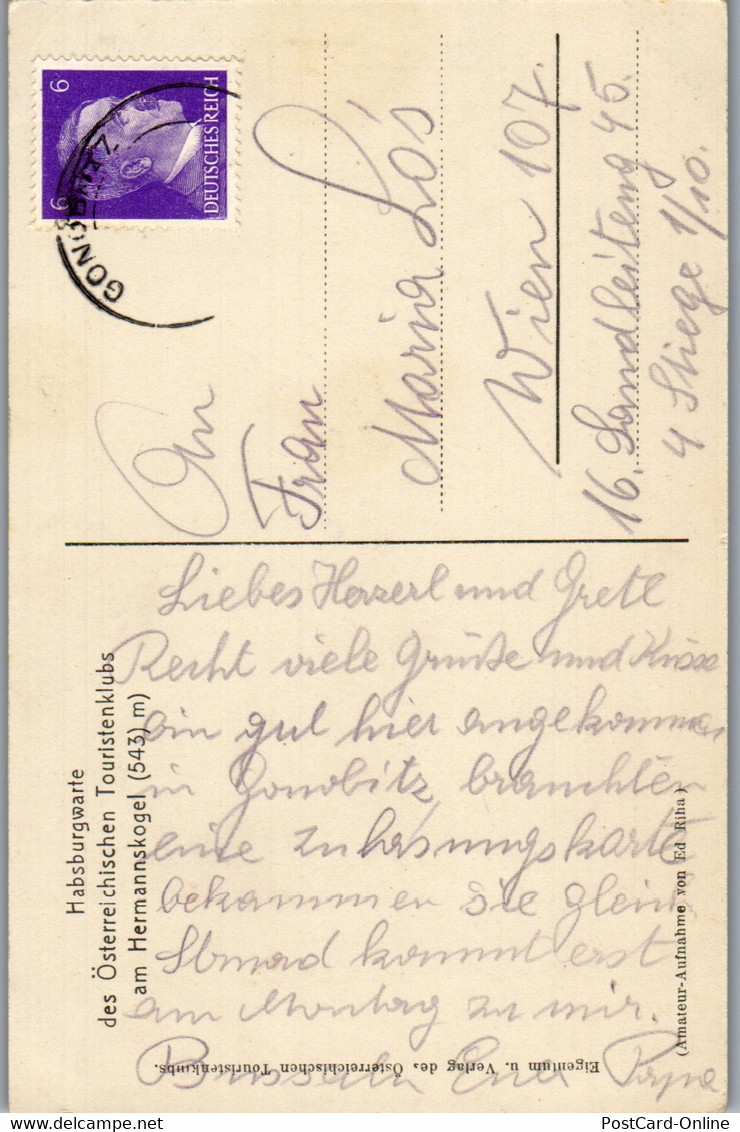 6 6
DEUTSCHES REICH
GONOBITZ
An
Frau
Maria Lós
Wien 107.
16. Sandleiteng 45.
4 Stiege 1/10.
Habsburgwarte
des Österreichischen Touristenklubs
am Hermannskogel (543) m)
Liebes Herzerl und Gretl
Recht viele Grüße und Küsse
bin gut hier angekommen
in Gonobitz, brauchten
eine Zulasungskarte
bekammen sie gleich
kommt erst
am Montag zu mir.
Euer Papa
Eigentum u. Verlag des Österreichischen Touristenklubs.
(Amateur-Aufnahme von Ed Riha)
PostCard-Online